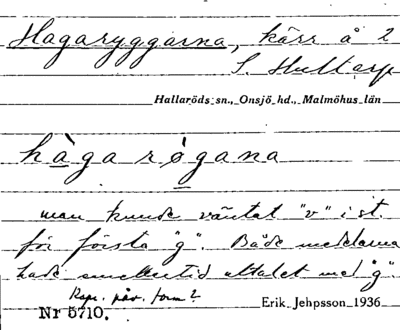 Hagaryggarna, kärr å 2
S. Hultarp
Hallaröds sn., Onsjö hd., Malmöhus län
hàga røgana
man kunde väntat "v" i st.
för första "g". Både meddelarna
hade emellertid uttalet med "g".
Rspr. påv. form?
Nr 5710. Erik Jehpsson 1936